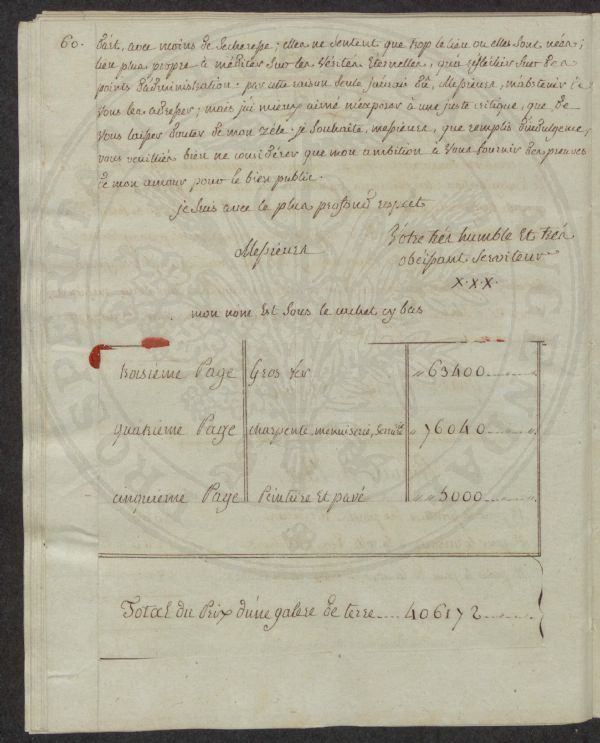 60. part, avec moins de secheresse; elles ne sentent que trop le lieu ou elles sont nées;
lieu plus propre à méditer sur les vérités éternelles, qu'a réflêchir sur des
points d'administration. par cette raison seule j'aurais dû, Messieurs, m'abstenir de
vous les adresser; mais j'ai mieux aimé m'exposer à une juste critique, que de
vous laisser douter de mon zéle. je souhaite, messieurs, que remplis d'indulgence,
vous veuilliés bien ne considérer que mon ambition à vous fournir des preuves
de mon amour pour le bien public.
je suis avec le plus profond respect
Messieurs
Vôtre trés humble et trés
obeissant serviteur
x.x.x.
mon nom est sous le cachet cy bas
troisiéme Page Gros fer 63400
quatriéme Page charpente, menuiserie, 76040
cinquiéme Page Peinture et pavé 5000
Total du Prix d'une galere de terre 406172